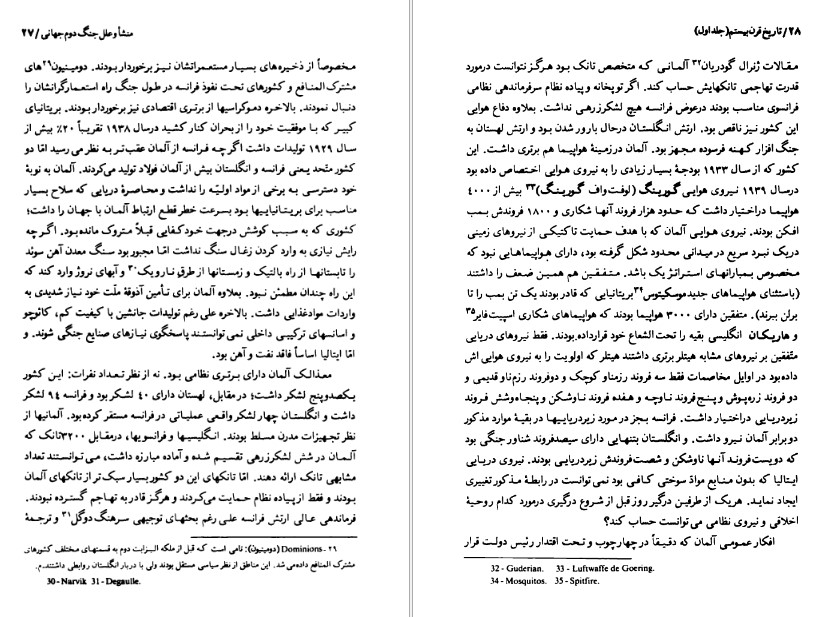 منشأ و علل جنگ دوم جهانی / ۲۷
مخصوصاً از ذخیره‌های بسیار مستعمراتشان نیز برخوردار بودند. دومینیون۲۹های
مشترک المنافع و کشورهای تحت نفوذ فرانسه در طول جنگ راه استعمارگرانشان را
دنبال نمودند. بالاخره دموکراسیها از برتری اقتصادی نیز برخوردار بودند. بریتانیای
کبیر که با موفقیت خود را از بحران کنار کشید درسال ۱۹۳۸ تقریباً ۲۰٪ بیش از
سال ۱۹۲۹ تولیدات داشت اگر چه فرانسه از آلمان عقب‌تر به نظر می رسید امّا دو
کشور متّحد یعنی فرانسه و انگلستان بیش از آلمان فولاد تولید می‌کردند. آلمان به نوبهٔ
خود دسترسی به برخی از مواد اولیّه را نداشت و محاصرهٔ دریایی که سلاح بسیار
مناسب برای بریتانیاییها بود بسرعت خطر قطع ارتباط آلمان با جهان را داشت؛
کشوری که به سبب کوشش درجهت خودکفایی قبلاً متروک مانده‌بود. اگر چه
رایش نیازی به وارد کردن زغال سنگ نداشت امّا مجبور بود سنگ معدن آهن سوئد
را تابستانها از راه بالتیک و زمستانها از طرق نارویک۳۰ و آبهای نروژ وارد کند که
این راه چندان مطمئن نبود. بعلاوه آلمان برای تأمین آذوقهٔ ملّت خود نیاز شدیدی به
واردات موادغذایی داشت. بالاخره علی رغم تولیدات جانشین با کیفیت کم، کائوچو
و اسانسهای ترکیبی داخلی نمی‌توانستند پاسخگوی نیازهای صنایع جنگی شوند. و
امّا ایتالیا اساساً فاقد نفت و آهن بود.
معذالک آلمان دارای برتری نظامی بود. نه از نظر تعداد نفرات: این کشور
یکصدوپنج لشکر داشت؛ در مقابل، لهستان دارای ۴۰ لشکر بود و فرانسه ۹۴ لشکر
داشت و انگلستان چهار لشکر واقعی عملیاتی در فرانسه مستقر کرده‌بود. آلمانها از
نظر تجهیزات مدرن مسلط بودند. انگلیسیها و فرانسویها، درمقابل ۳۲۰۰تانک که
آلمان در شش لشکرزرهی تقسیم شده و آماده مبارزه داشت، می‌توانستند تعداد
مشابهی تانک ارائه دهند. امّا تانکهای این دو کشور بسیار سبک‌تر از تانکهای آلمان
بودند و فقط از پیاده نظام حمایت می‌کردند و هرگز قادر به تهاجم گسترده نبودند.
فرماندهی عالی ارتش فرانسه علی رغم بحثهای توجیهی سرهنگ دوگل۳۱ و ترجمهٔ
۲۹ - Dominions (دومینیون): نامی است که قبل از ملکه الیزابت دوم به قسمتهای مختلف کشورهای
مشترک المنافع داده می شد. این مناطق از نظر سیاسی مستقل بودند ولی با دربار انگلستان روابطی داشتند.م.
30 - Narvik 31 - Degaulle.
۲۸ / تاریخ قرن بیستم (جلد اول)
مقالات ژنرال گودریان۳۲ آلمانی که متخصص تانک بود هرگز نتوانست درمورد
قدرت تهاجمی تانکهایش حساب کند. اگر توپخانه و پیاده نظام سرفرماندهی نظامی
فرانسوی مناسب بودند درعوض فرانسه هیچ لشکرزرهی نداشت. بعلاوه دفاع هوایی
این کشور نیز ناقص بود. ارتش انگلستان درحال بارور شدن بود و ارتش لهستان به
جنگ افزار کهنه فرسوده مجهز بود. آلمان درزمینهٔ هواپیما هم برتری داشت. این
کشور که از سال ۱۹۳۳ بودجهٔ بسیار زیادی را به نیروی هوایی اختصاص داده بود
درسال ۱۹۳۹ نیروی هوایی گورینگ (لوفت‌واف گورینگ)۳۳ بیش از ۴۰۰۰
هواپیما دراختیار داشت که حدود هزار فروند آنها شکاری و ۱۸۰۰ فروندش بمب
افکن بودند. نیروی هوایی آلمان که با هدف حمایت تاکتیکی از نیروهای زمینی
دریک نبرد سریع در میدانی محدود شکل گرفته بود، دارای هواپیماهایی نبود که
مخصوص بمبارانهای استراتژیک باشد. متفقین هم همین ضعف را داشتند
(باستثنای هواپیماهای جدید موسکیتوس۳۴ بریتانیایی که قادر بودند یک تن بمب را تا
برلن ببرند). متفقین دارای ۳۰۰۰ هواپیما بودند که هواپیماهای شکاری اسپیت‌فایر۳۵
و هاریکان انگلیسی بقیه را تحت‌الشعاع خود قرارداده‌بودند. فقط نیروهای دریایی
متّفقین بر نیروهای مشابه هیتلر برتری داشتند هیتلر که اولویت را به نیروی هوایی اش
داده‌بود در اوایل مخاصمات فقط سه فروند رزمناو کوچک و دوفروند رزم‌ناو قدیمی و
دو فروند زره‌پوش و پنج‌فروند ناوچه و هفده فروند ناوشکن و پنجاه‌وشش فروند
زیردریایی دراختیار داشت. فرانسه بجز در مورد زیردریاییها در بقیهٔ موارد مذکور
دو برابر آلمان نیرو داشت. و انگلستان بتنهایی دارای سیصدفروند شناور جنگی بود
که دویست‌فروند آنها ناوشکن و شصت‌فروندش زیردریایی بودند. نیروی دریایی
ایتالیا که بدون منابع موادّ سوختی کافی بود نمی توانست در رابطهٔ مذکور تغییری
ایجاد نماید. هریک از طرفین درگیر روز قبل از شروع درگیری درمورد کدام روحیهٔ
اخلاقی و نیروی نظامی می‌توانست حساب کند؟
افکار عمومی آلمان که دقیقاً در چهارچوب و تحت اقتدار رئیس دولت قرار
32 - Guderian. 33 - Luftwaffe de Goering.
34 - Mosquitos. 35 - Spitfire.